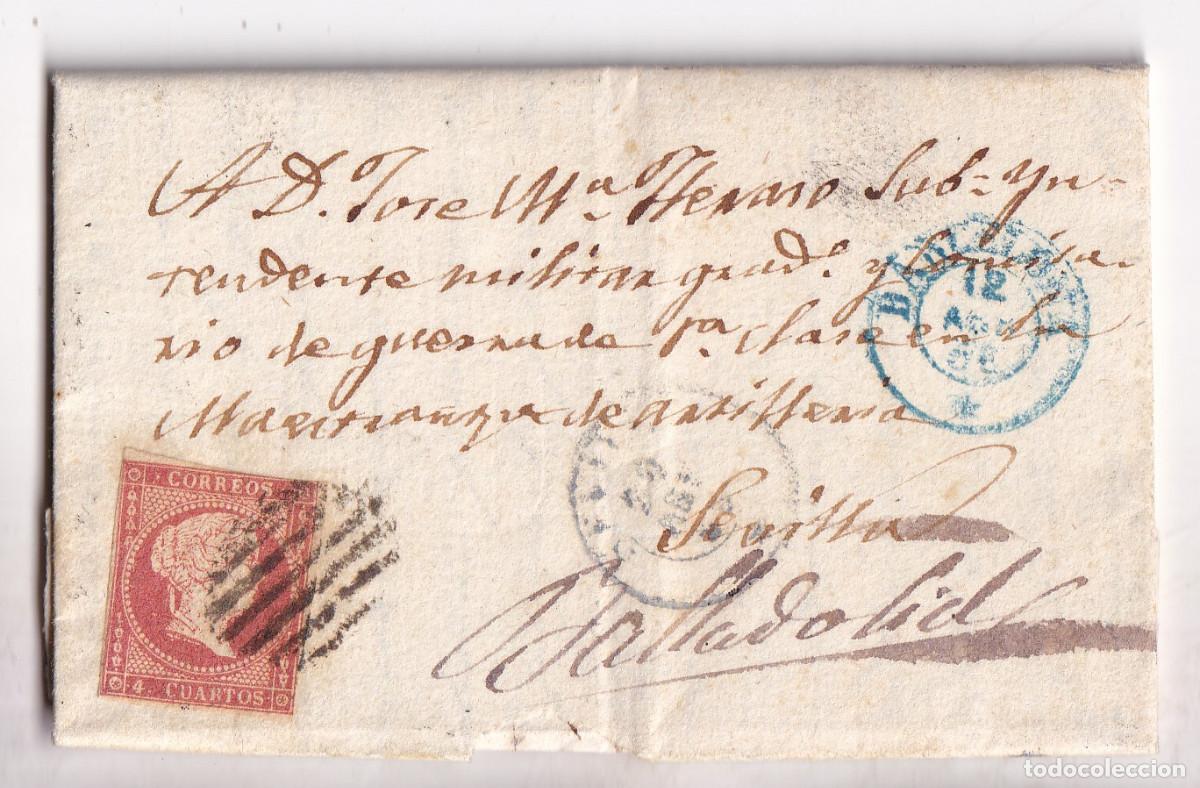 A D. Jose Mª Herraso Sub= Yn-
tendente militar grad.º y Comisa-
rio de guerra de 1ª clase en la
Maestranza de artilleria
Sevilla
Valladolid
CORREOS
4 CUARTOS
12
AGO
todocoleccion